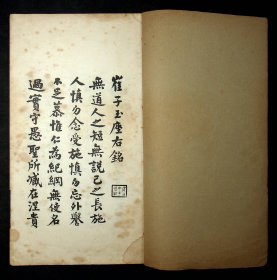 崔子玉座右銘
無道人之短無說己之長施
人慎勿念受施慎勿忘外譽
不乏慕惟仁為紀綱無使名
過實守愚聖所臧在涅貴